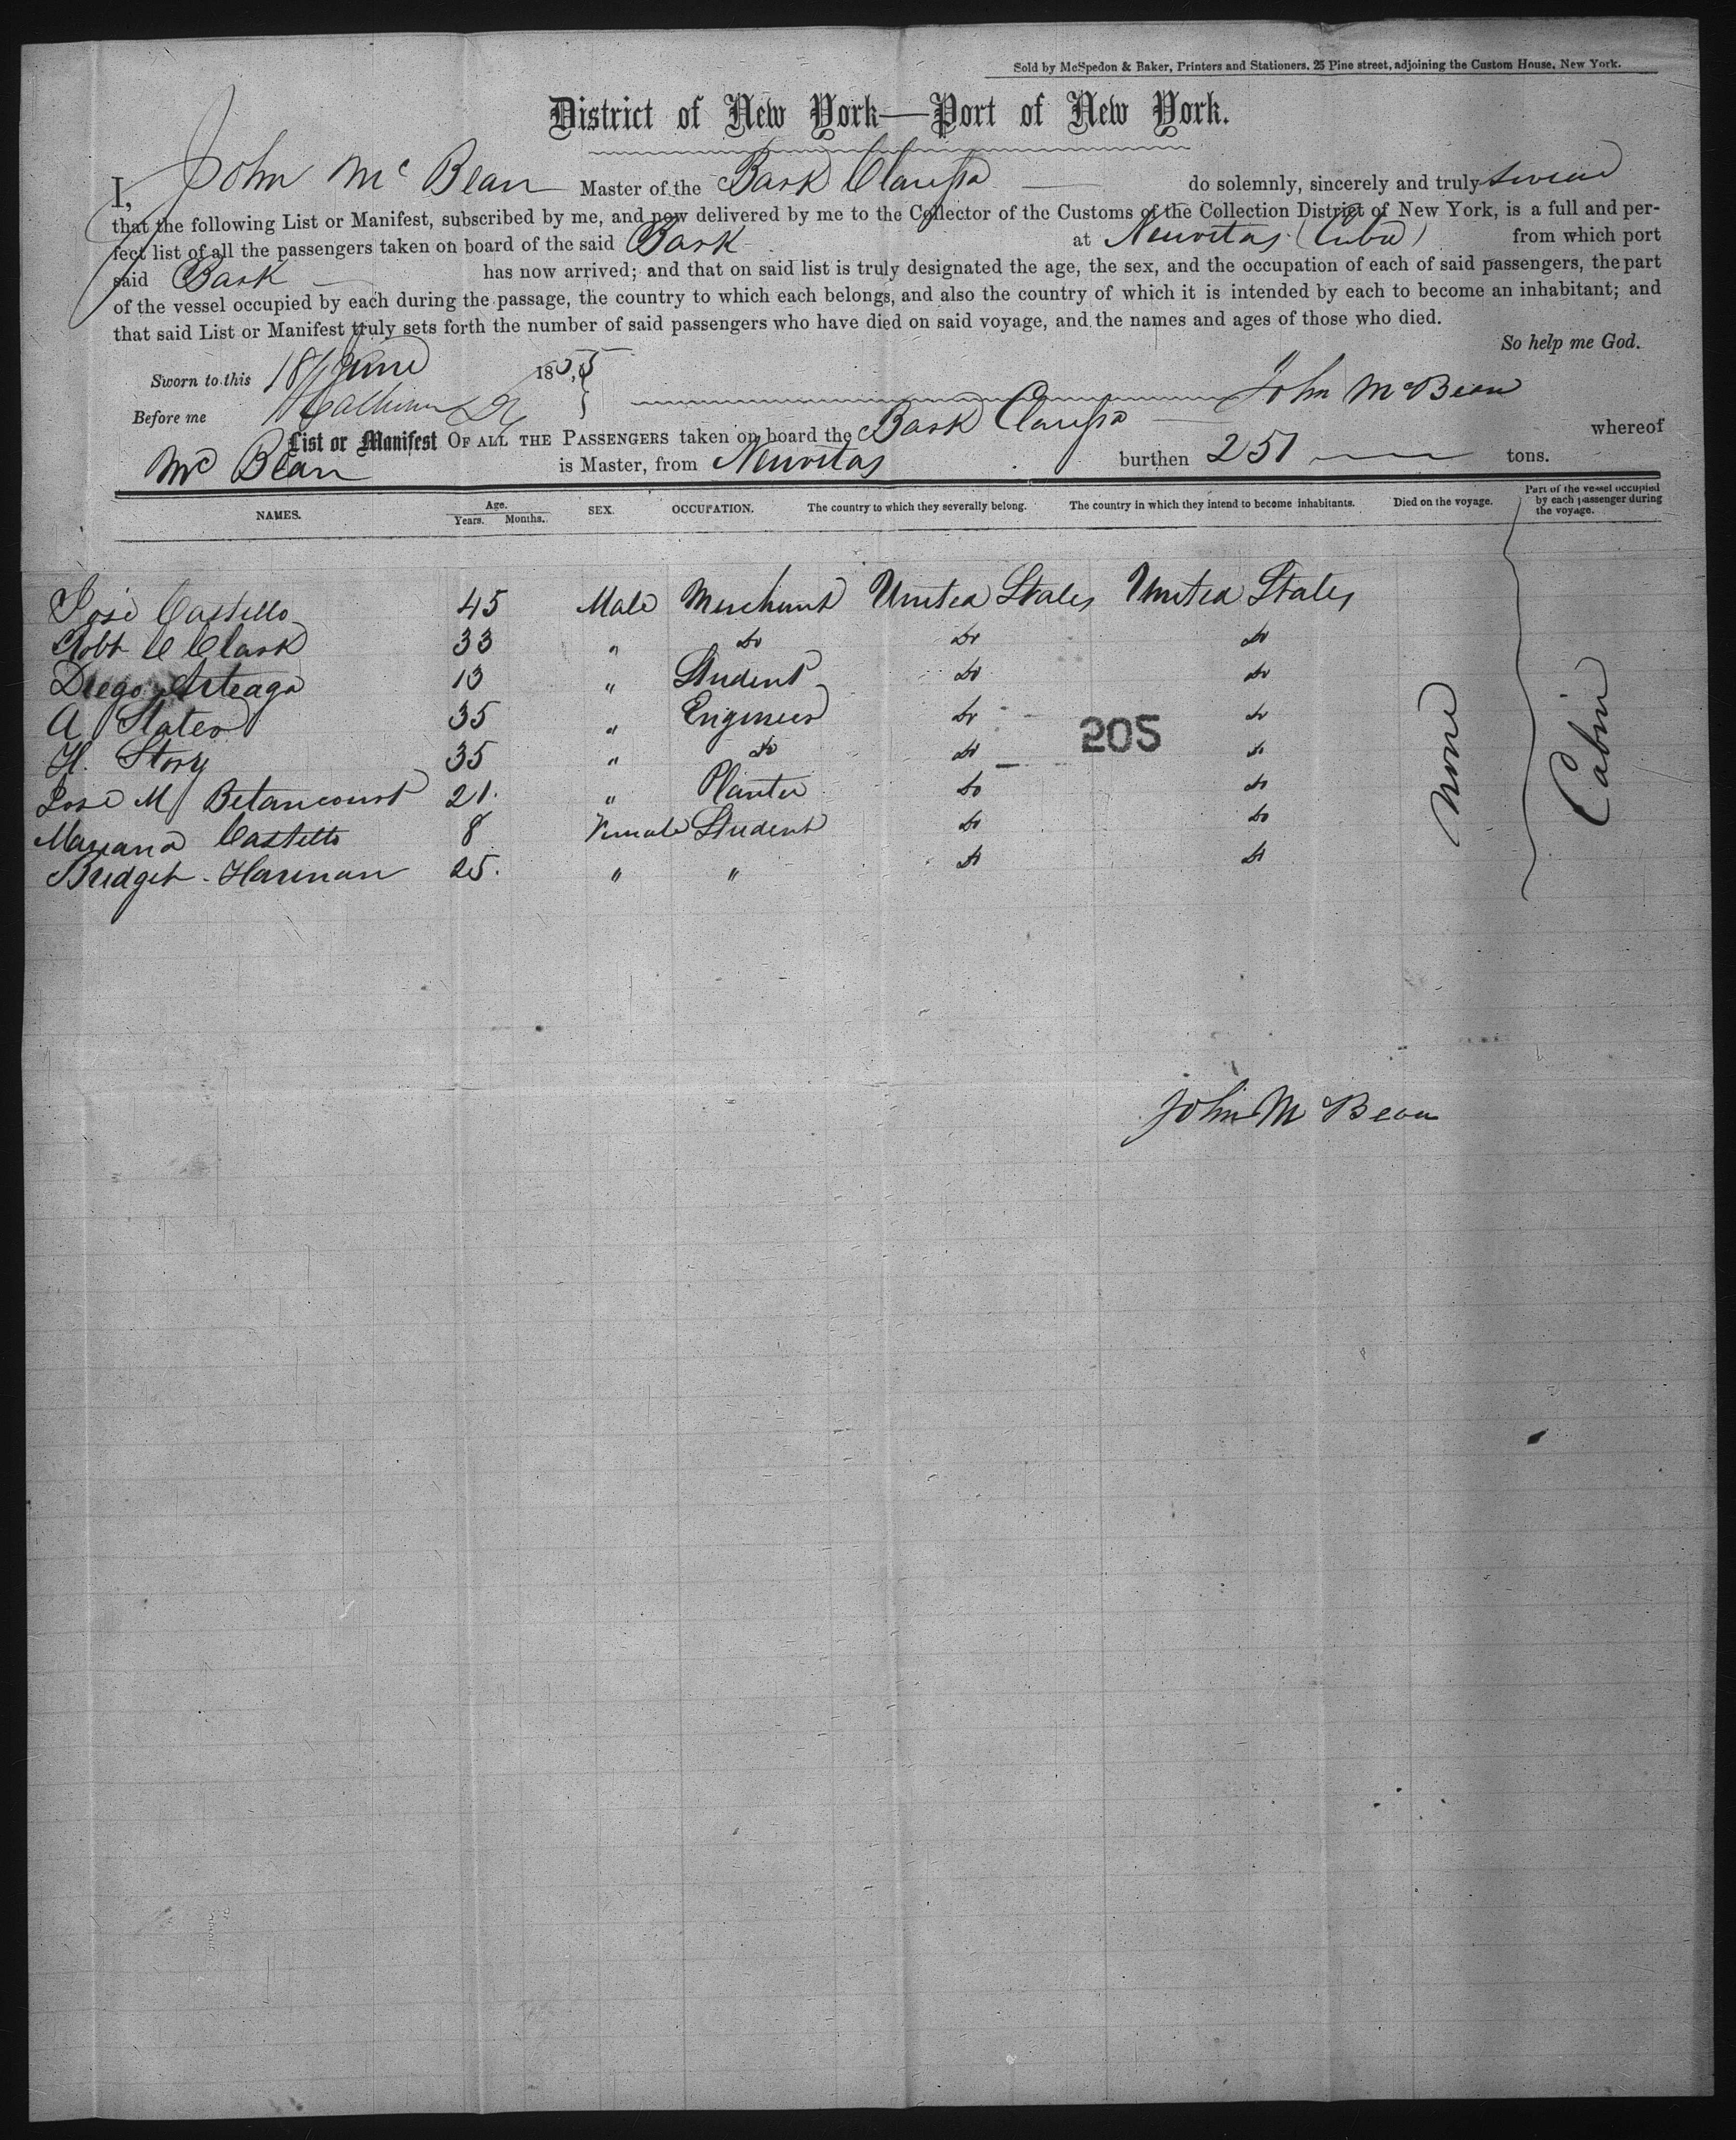 Sold by McSpedon & Baker, Printers and Stationers, 25 Pine street, adjoining the Custom House, New York.
District of New York—Port of New York.
I, John Mc Bean Master of the Bark Clarissa do solemnly, sincerely and truly swear
that the following List or Manifest, subscribed by me, and now delivered by me to the Collector of the Customs of the Collection District of New York, is a full and per-
fect list of all the passengers taken on board of the said Bark at Neuvitas (Cuba) from which port
said Bark has now arrived; and that on said list is truly designated the age, the sex, and the occupation of each of said passengers, the part
of the vessel occupied by each during the passage, the country to which each belongs, and also the country of which it is intended by each to become an inhabitant; and
that said List or Manifest truly sets forth the number of said passengers who have died on said voyage, and the names and ages of those who died.
So help me God.
Sworn to this 18 June 1855
Before me John McBean
List or Manifest OF ALL THE PASSENGERS taken on board the Bark Clarissa whereof
Mc Bean is Master, from Neuvitas burthen 251 tons.
NAMES. Age. Years. Months. SEX. OCCUPATION. The country to which they severally belong. The country in which they intend to become inhabitants. Died on the voyage. Part of the vessel occupied by each passenger during the voyage.
José Castello 45 Male Merchant United States United States
Robt C Clark 33 " do do do
Diego Arteaga 13 " Student do do
A Slater 35 " Engineer do do
205
H. Story 35 " do do do
Jose M Betancourt 21. " Planter do do
Mariana Castello 8 Female Student do do
Bridget Harinan 25. " " do do
None
Cabin
John McBean